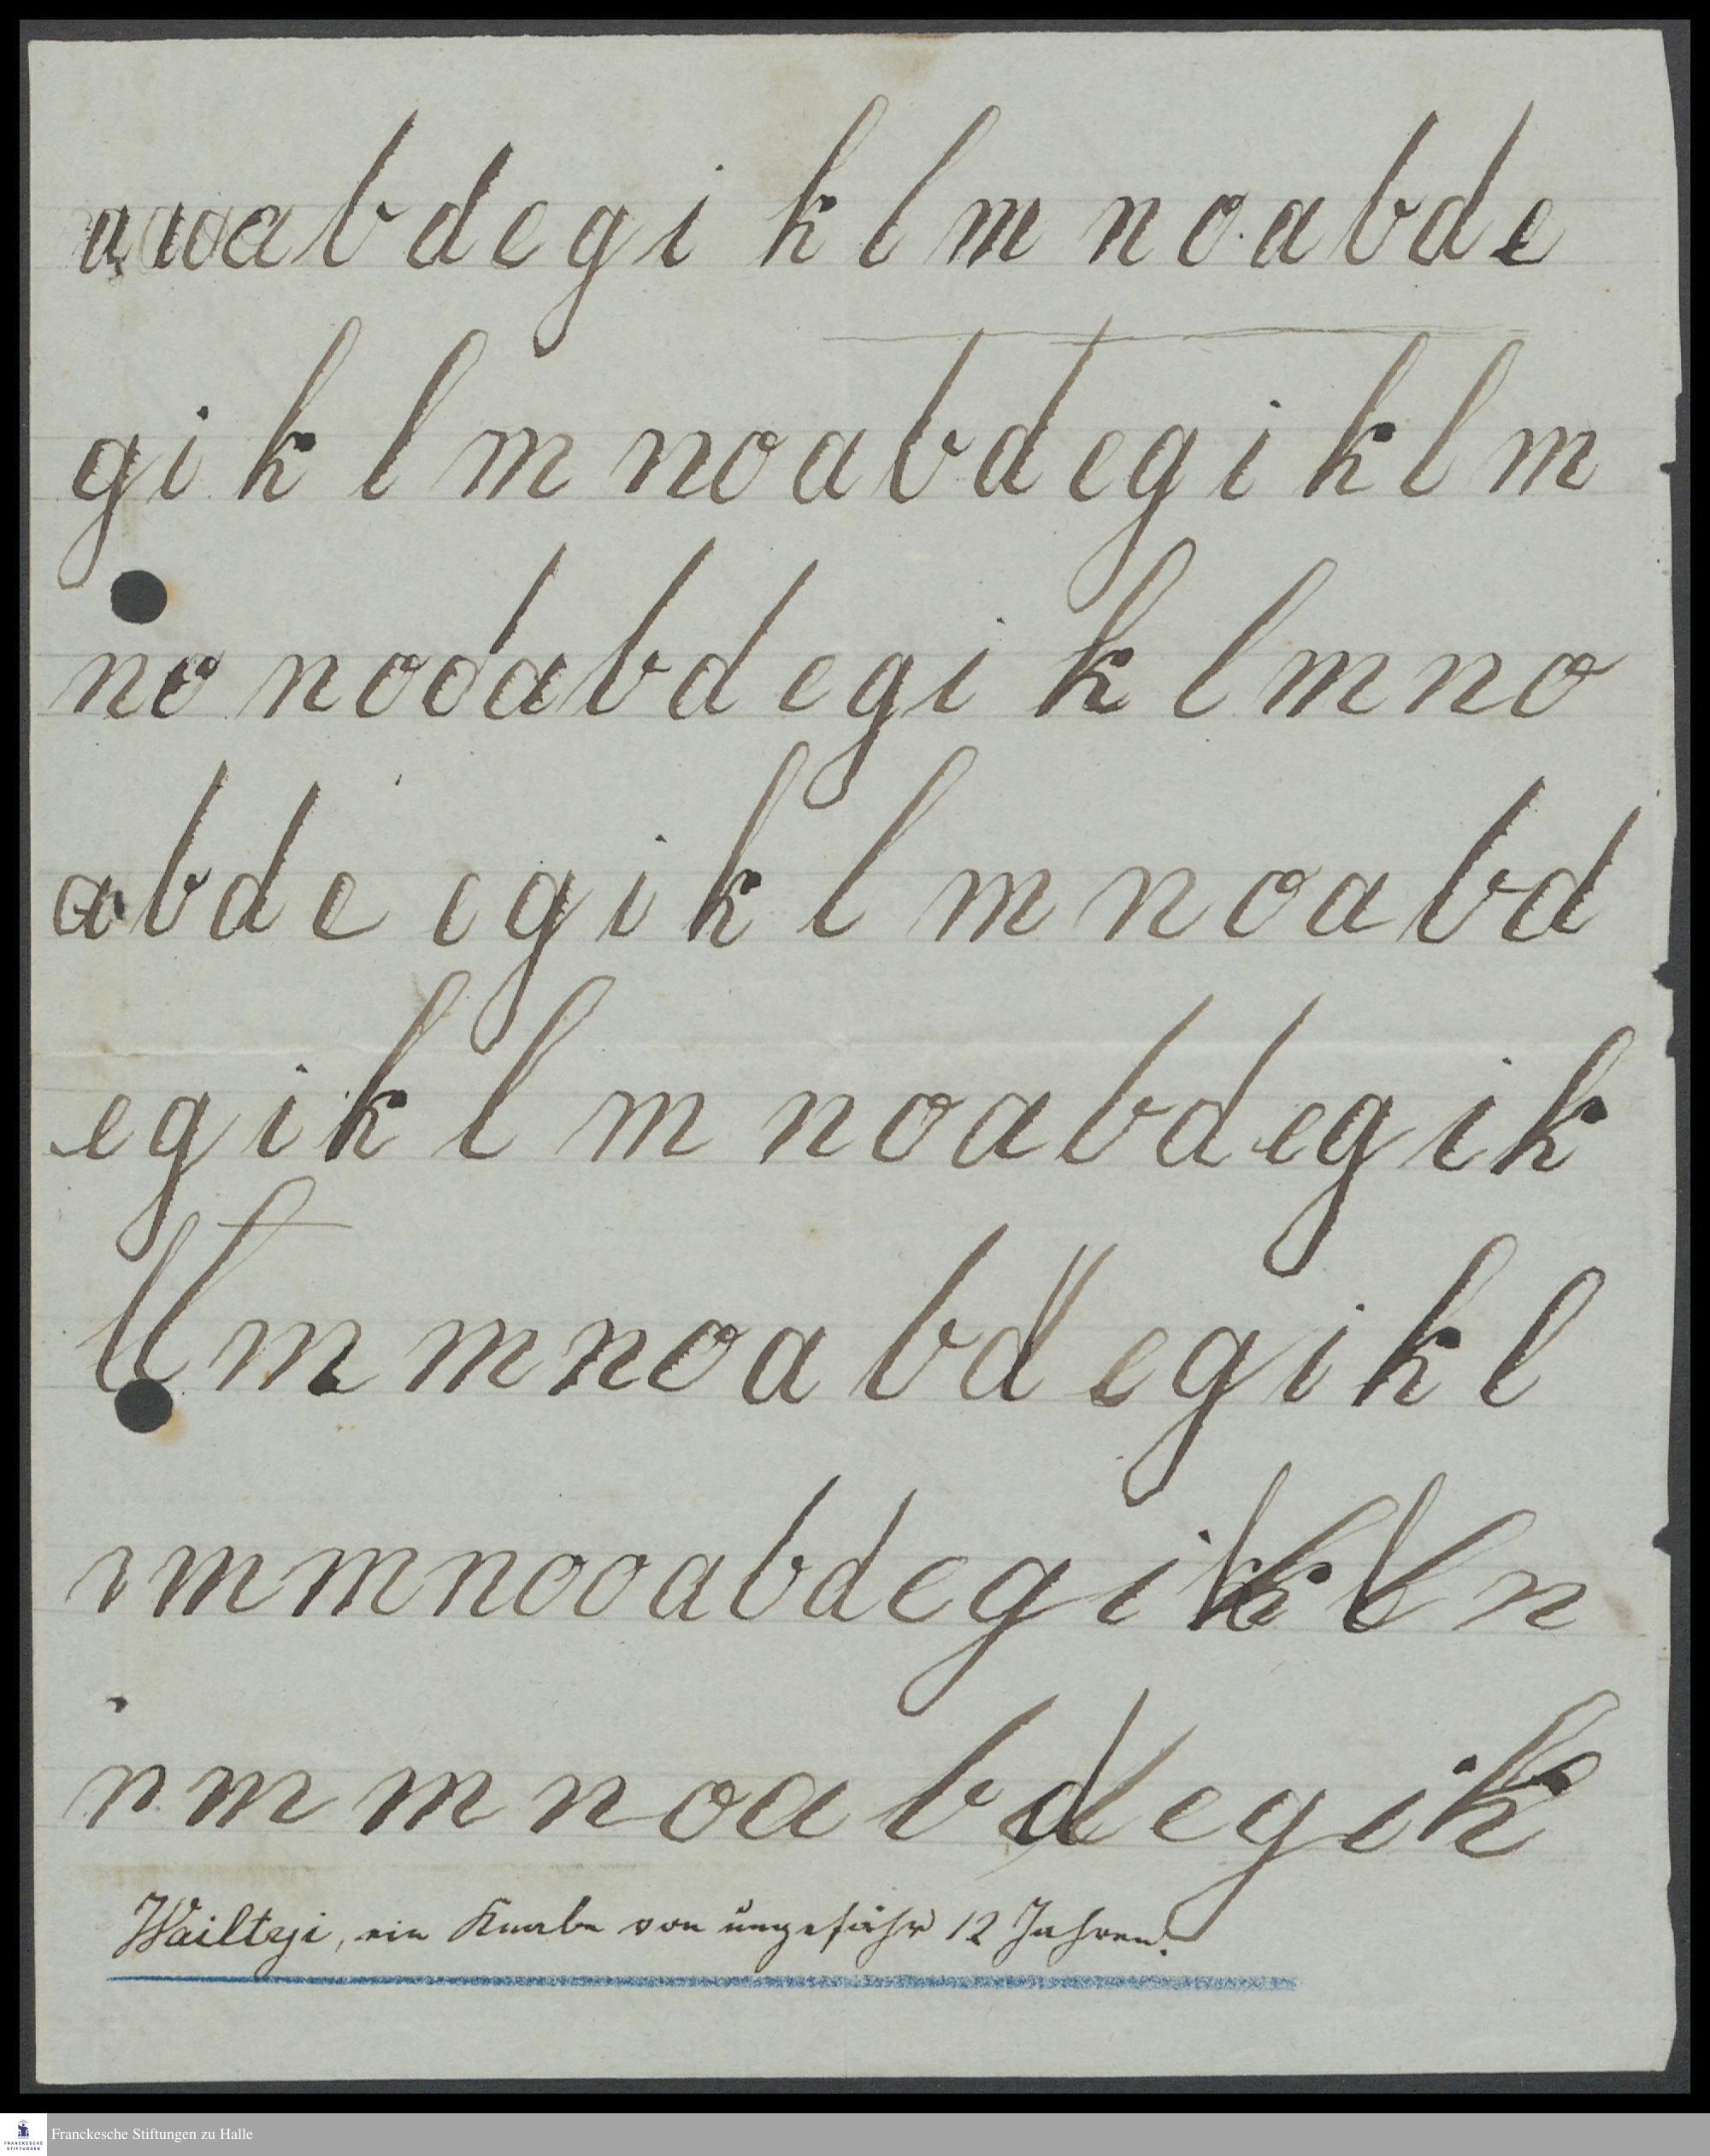 a a o a b d e g i k l m n o a b d e
g i k l m n o a b d e g i k l m
n o n o d a b d e g i k l m n o
a b d e e g i k l m n o a b d
e g i k l m n o a b d e g i k
l l m m n o a b d e g i k l
m m n o o a b d e g i k l n
n m m n o a b d e g i k
ein Knabe von ungefähr 12 Jahren.
Franckesche Stiftungen zu Halle
FRANCKESCHE
STIFTUNGEN